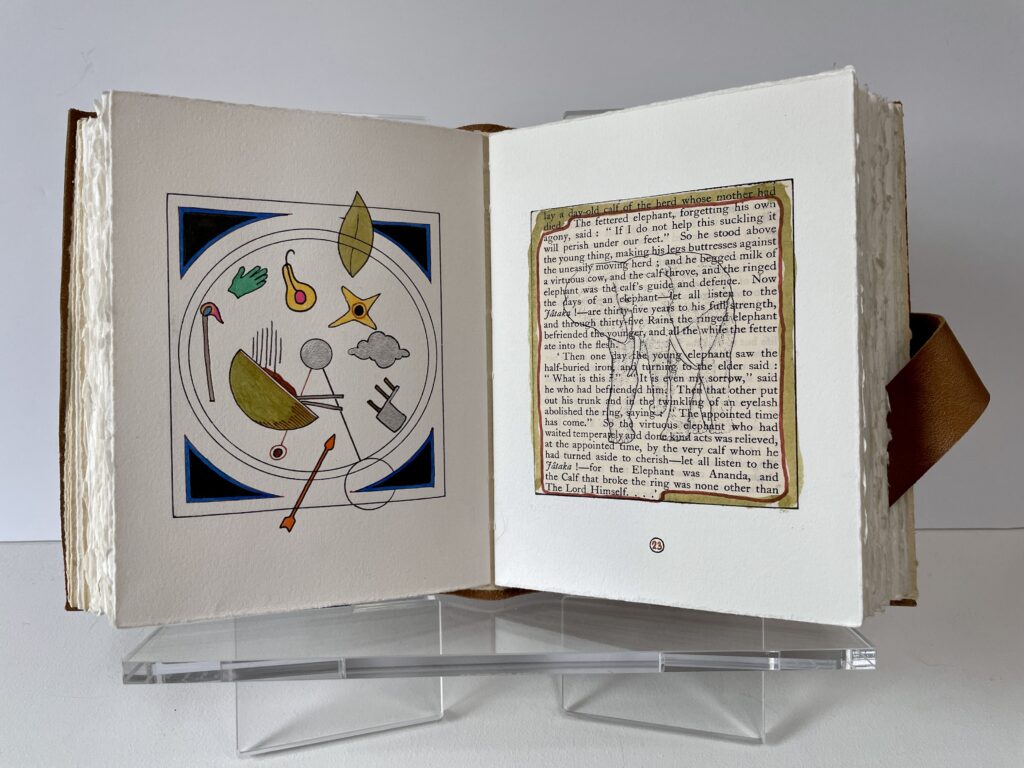 lay a day-old calf of the herd whose mother had
died. The fettered elephant, forgetting his own
agony, said : “ If I do not help this suckling it
will perish under our feet.” So he stood above
the young thing, making his legs buttresses against
the uneasily moving herd ; and he begged milk of
a virtuous cow, and the calf throve, and the ringed
elephant was the calf's guide and defence. Now
the days of an elephant—let all listen to the
Jâtaka !—are thirty-five years to his full strength,
and through thirty-five Rains the ringed elephant
befriended the younger, and all the while the fetter
ate into the flesh.
‘ Then one day the young elephant saw the
half-buried iron, and turning to the elder said :
“ What is this ? ” “ It is even my sorrow,” said
he who had befriended him. Then that other put
out his trunk and in the twinkling of an eyelash
abolished the ring, saying : “ The appointed time
has come.” So the virtuous elephant who had
waited temperately and done kind acts was relieved,
at the appointed time, by the very calf whom he
had turned aside to cherish—let all listen to the
Jâtaka !—for the Elephant was Ananda, and
the Calf that broke the ring was none other than
The Lord Himself. . . .
23